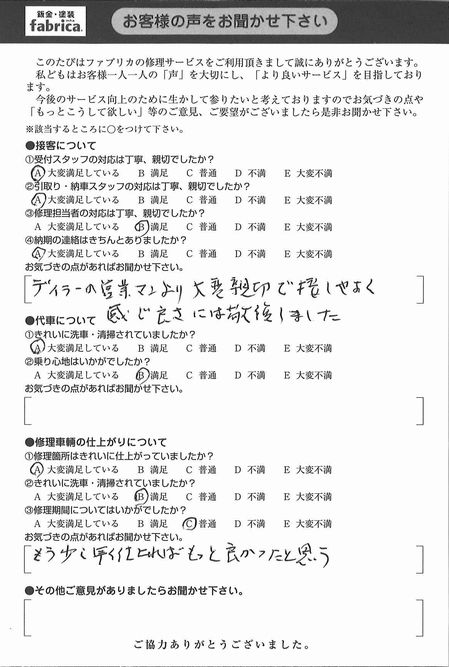 鈑金・塗装
fabrica.
お客様の声をお聞かせ下さい
このたびはファブリカの修理サービスをご利用頂きまして誠にありがとうございます。
私どもはお客様一人一人の「声」を大切にし、「より良いサービス」を目指しており
ます。
今後のサービス向上のために生かして参りたいと考えておりますのでお気づきの点や
「もっとこうして欲しい」等のご意見、ご要望がございましたら是非お聞かせ下さい。
※該当するところに○をつけて下さい。
●接客について
①受付スタッフの対応は丁寧、親切でしたか?
A 大変満足している B 満足 C 普通 D 不満 E 大変不満
②引取り・納車スタッフの対応は丁寧、親切でしたか?
A 大変満足している B 満足 C 普通 D 不満 E 大変不満
③修理担当者の対応は丁寧、親切でしたか?
A 大変満足している B 満足 C 普通 D 不満 E 大変不満
④納期の連絡はきちんとありましたか?
A 大変満足している B 満足 C 普通 D 不満 E 大変不満
お気づきの点があればお聞かせ下さい。
ディラーの営業マンより大変親切で接しやすく
感じ良さには敬服しました
●代車について
①きれいに洗車・清掃されていましたか?
A 大変満足している B 満足 C 普通 D 不満 E 大変不満
②乗り心地はいかがでしたか?
A 大変満足している B 満足 C 普通 D 不満 E 大変不満
お気づきの点があればお聞かせ下さい。
●修理車輌の仕上がりについて
①修理箇所はきれいに仕上がっていましたか?
A 大変満足している B 満足 C 普通 D 不満 E 大変不満
②きれいに洗車・清掃されていましたか?
A 大変満足している B 満足 C 普通 D 不満 E 大変不満
③修理期間についてはいかがでしたか?
A 大変満足している B 満足 C 普通 D 不満 E 大変不満
お気づきの点があればお聞かせ下さい。
もう少し早く仕上ればもっと良かったと思う
●その他ご意見がありましたらお聞かせ下さい。
ご協力ありがとうございました。